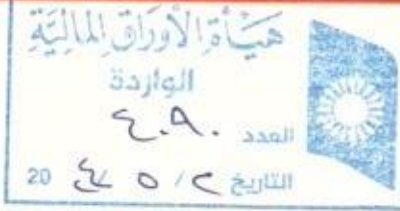 هيأة الأوراق المالية
الواردة
العدد ٤٠٩٠
التاريخ ٢ / ٥ / 20